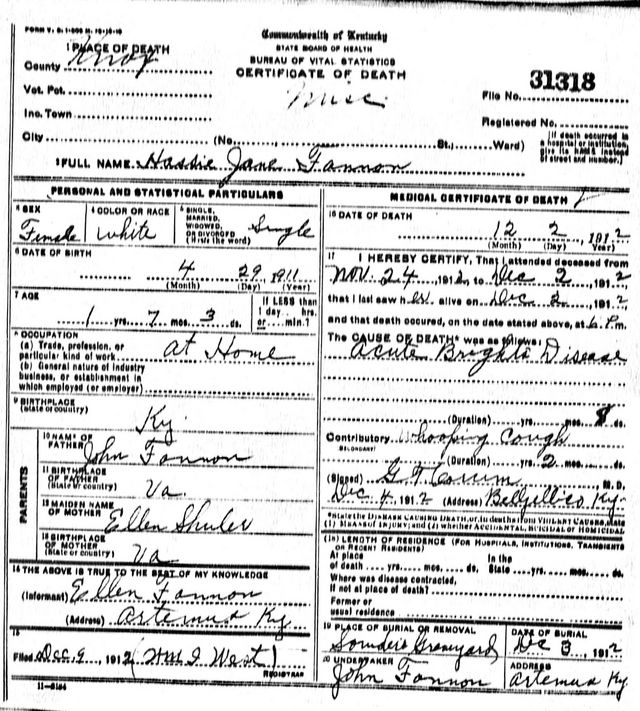 FORM V. S. 1-
Commonwealth of Kentucky
STATE BOARD OF HEALTH
BUREAU OF VITAL STATISTICS
CERTIFICATE OF DEATH
1 PLACE OF DEATH
County Knox
Vot. Pct.
Inc. Town
City (No. St.; Ward)
Misc
31318
File No.
Registered No.
[If death occurred in
a hospital or institution,
give its NAME instead
of street and number.]
2 FULL NAME Hassie Jane Fannon
PERSONAL AND STATISTICAL PARTICULARS
3 SEX
Female
4 COLOR OR RACE
White
5 SINGLE,
MARRIED,
WIDOWED,
OR DIVORCED
(Write the word)
Single
6 DATE OF BIRTH
4 29 1911
(Month) (Day) (Year)
7 AGE
1 yrs. 7 mos. 3 ds.
If LESS than
1 day hrs.
or min.?
8 OCCUPATION
(a) Trade, profession, or
particular kind of work
At Home
(b) General nature of industry
business, or establishment in
which employed (or employer)
9 BIRTHPLACE
(State or country)
Ky.
PARENTS
10 NAME OF
FATHER
John Fannon
11 BIRTHPLACE
OF FATHER
(State or country)
Va.
12 MAIDEN NAME
OF MOTHER
Ellen Shuler
13 BIRTHPLACE
OF MOTHER
(State or country)
Va
14 THE ABOVE IS TRUE TO THE BEST OF MY KNOWLEDGE
(Informant) Ellen Fannon
(Address) Artemus Ky.
15
Filed Dec. 9 1912 Wm I West
REGISTRAR
11-8184
MEDICAL CERTIFICATE OF DEATH
16 DATE OF DEATH
12 2, 1912
(Month) (Day) (Year)
17 I HEREBY CERTIFY, That I attended deceased from
Nov. 24, 1912, to Dec 2, 1912
that I last saw her alive on Dec 2, 1912,
and that death occured, on the date stated above, at 6 P.m.
The CAUSE OF DEATH* was as follows:
Acute Brights Disease
(Duration) yrs. mos. 8 ds.
Contributory Whooping Cough
SECONDARY
(Duration) yrs. 2 mos. ds.
(Signed) G. T. Corum, M. D.
Dec 4, 1912 (Address) Belljellico Ky.
*State the DISEASE CAUSING DEATH, or, in deaths from VIOLENT CAUSES, state
(1) MEANS OF INJURY; and (2) whether ACCIDENTAL, SUICIDAL or HOMICIDAL
18 LENGTH OF RESIDENCE (FOR HOSPITALS, INSTITUTIONS, TRANSIENTS
OR RECENT RESIDENTS)
At place
of death yrs. mos. ds.
In the
State yrs. mos. ds.
Where was disease contracted,
if not at place of death?
Former or
usual residence
19 PLACE OF BURIAL OR REMOVAL
Graveyard
DATE OF BURIAL
Dec 3, 1912
20 UNDERTAKER
John Fannon
ADDRESS
Artemus Ky.